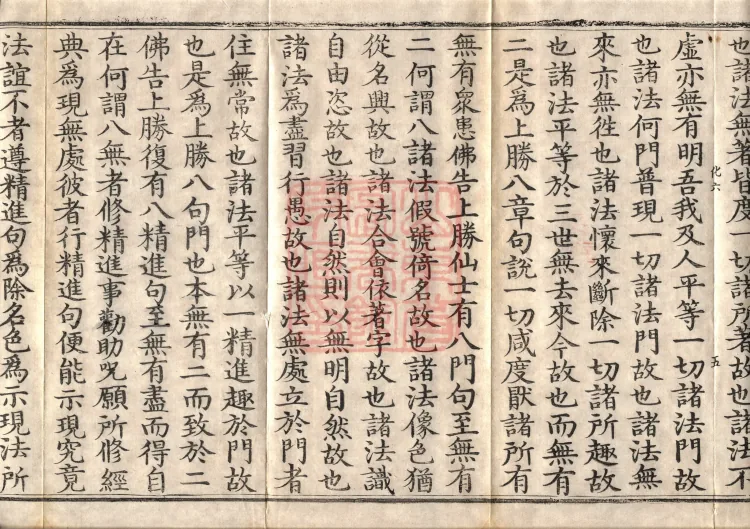 也諸法無著皆度一切諸所著故也諸法不
化六
五
虛亦無有明吾我及人平等一切諸法門故
也諸法何門普現一切諸法門故也諸法無
來亦無徃也諸法懷來斷除一切諸所趣故
也諸法平等於三世無去來今故也而無有
二是為上勝八章句說一切咸度猒諸所有
無有衆患佛告上勝仙士有八門句至無有
二何謂八諸法假號倚名故也諸法像色猶
從名興故也諸法合會依著字故也諸法識
自由恣故也諸法自然則以無明自然故也
諸法為盡習行愚故也諸法無處立於門者
住無常故也諸法平等以一精進趣於門故
也是為上勝八句門也本無有二而致於二
佛告上勝復有八精進句至無有盡而得自
在何謂八無者修精進事勸助呪願所修經
典為現無處彼者行精進句便能示現究竟
法誼不者遵精進句為除名色為示現法所